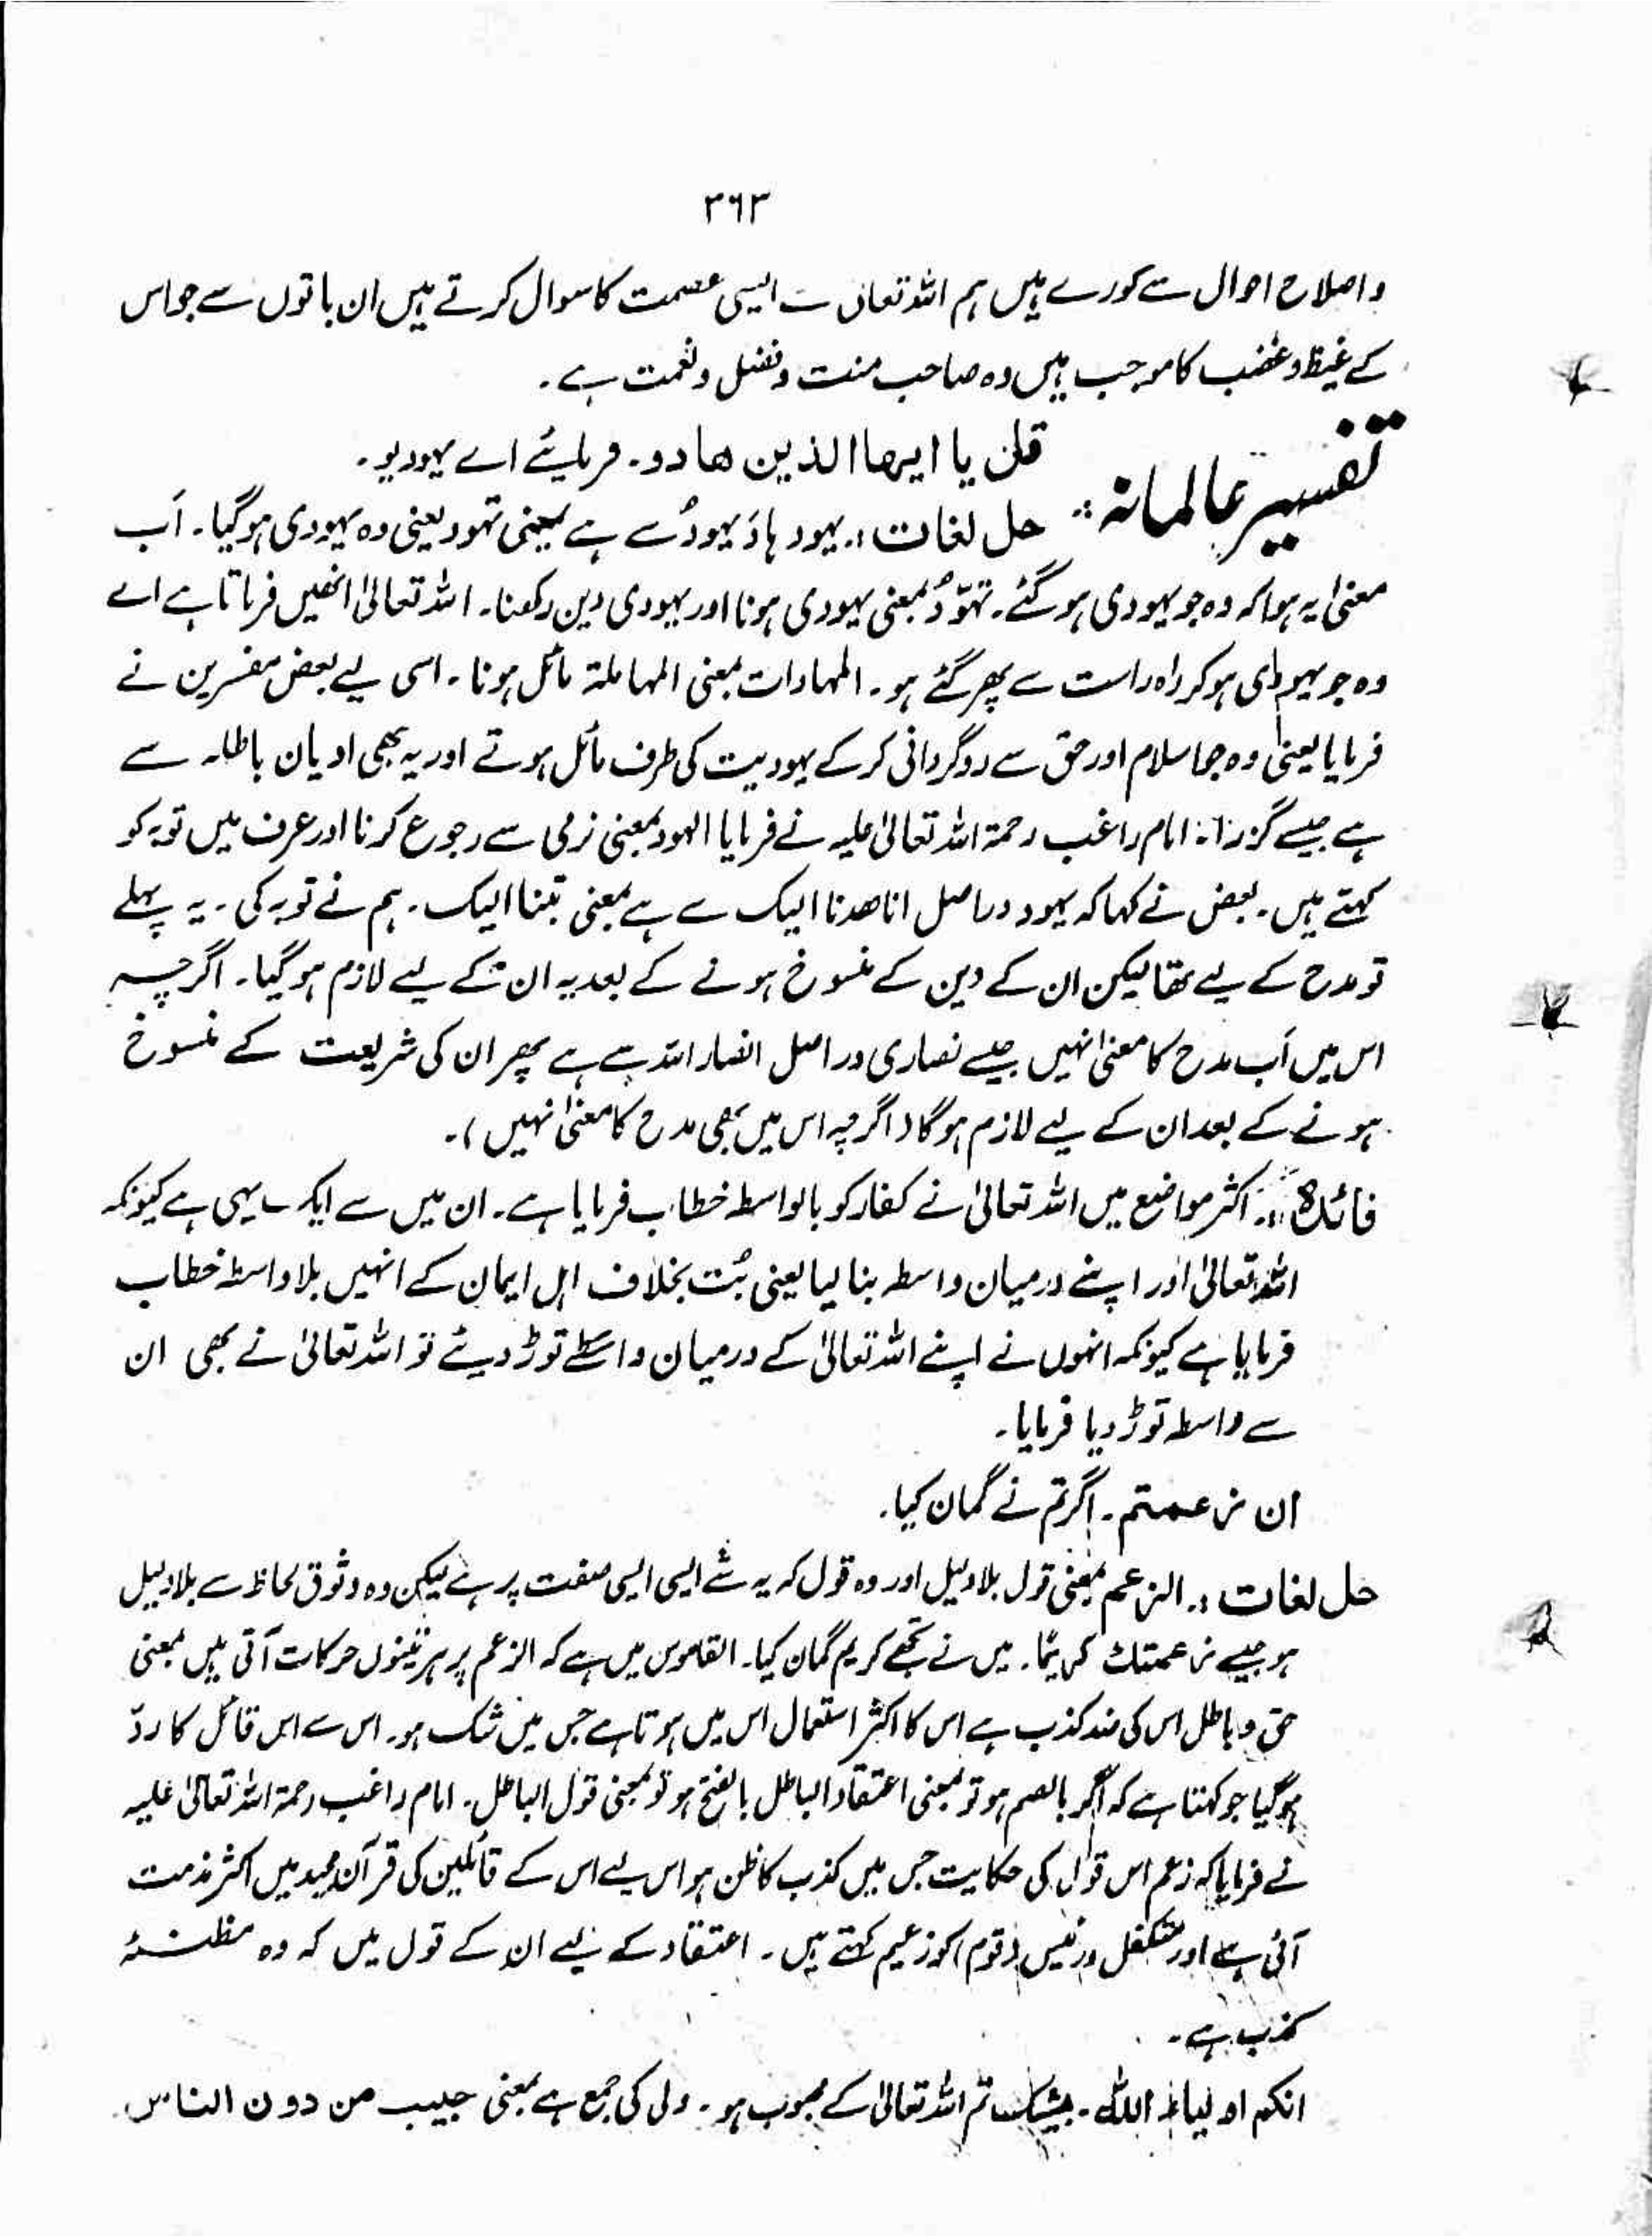 ۳۶۳
و اصلاح احوال سے کورے ہیں ہم اللہ تعالیٰ سے ایسی عصمت کا سوال کرتے ہیں ان باتوں سے جو اس
کے غیظ و غضب کا موجب ہیں وہ صاحب منت و فضل و نعمت ہے۔
تفسیر عالمانہ:
قل یا ایھا الذین ھادو۔ فرمایئے اے یہودیو۔
حل لغات :۔ یہود ہادَ یہودُ سے ہے بمعنی تہود یعنی وہ یہودی ہوگیا۔ اَب
معنیٰ یہ ہوا کہ وہ جو یہودی ہوگئے۔ تہوّدُ بمعنی یہودی ہونا اور یہودی دین رکھنا۔ اللہ تعالیٰ انھیں فرماتا ہے اے
وہ جو یہودی ہو کر راہ راست سے پھر گئے ہو۔ المہادات بمعنی المہاملۃ مائل ہونا۔ اسی لیے بعض مفسرین نے
فرمایا یعنی وہ جو اسلام اور حق سے روگردانی کر کے یہودیت کی طرف مائل ہوتے اور یہ بھی ادیان باطلہ سے
ہے جیسے گزرا : امام راغب رحمۃ اللہ تعالیٰ علیہ نے فرمایا الہود بمعنی نرمی سے رجوع کرنا اور عرف میں توبہ کو
کہتے ہیں۔ بعض نے کہا کہ یہود دراصل انا ھدنا الیک سے ہے بمعنی تبنا الیک۔ ہم نے توبہ کی۔ یہ پہلے
تو مدح کے لیے تھا لیکن ان کے دین کے منسوخ ہونے کے بعد یہ ان کے لیے لازم ہوگیا۔ اگرچہ
اس میں اَب مدح کا معنیٰ نہیں جیسے نصاریٰ دراصل انصار اللہ سے ہے پھر ان کی شریعت کے منسوخ
ہونے کے بعد ان کے لیے لازم ہوگا (اگرچہ اس میں بھی مدح کا معنیٰ نہیں)۔
فائدہ :۔ اکثر مواضع میں اللہ تعالیٰ نے کفار کو بالواسطہ خطاب فرمایا ہے۔ ان میں سے ایک یہی ہے کیونکہ
اللہ تعالیٰ اور اپنے درمیان واسطہ بنا لیا یعنی بُت بخلاف اہل ایمان کے انہیں بلا واسطہ خطاب
فرمایا ہے کیونکہ انہوں نے اپنے اللہ تعالیٰ کے درمیان واسطے توڑ دیئے تو اللہ تعالیٰ نے بھی ان
سے واسطہ توڑ دیا فرمایا۔
ان زعمتم۔ اگر تم نے گمان کیا۔
حل لغات :۔ الزعم بمعنی قول بلا دلیل اور وہ قول کہ یہ شے ایسی ایسی صفت پر ہے لیکن وہ وثوق لحاظ سے بلا دلیل
ہو جیسے زعمتک کریمًا۔ میں نے تجھے کریم گمان کیا۔ القاموس میں ہے کہ الزعم پر ہر تینوں حرکات آتی ہیں بمعنی
حق و باطل اس کی ضد کذب ہے اس کا اکثر استعمال اس میں ہوتا ہے جس میں شک ہو۔ اس سے اس قائل کا ردّ
ہوگیا جو کہتا ہے کہ اگر بالضم ہو تو بمعنی اعتقاد الباطل بالفتح ہو تو بمعنی قول الباطل۔ امام راغب رحمۃ اللہ تعالیٰ علیہ
نے فرمایا کہ زعم اس قول کی حکایت جس میں کذب کا ظن ہو اس لیے اس کے قائلین کی قرآن مجید میں اکثر مذمت
آئی ہے اور متکفل و رئیس (قوم) کو زعیم کہتے ہیں۔ اعتقاد کے لیے ان کے قول میں کہ وہ مظنۂ
کذب ہے۔
انکم اولیاء اللہ۔ بیشک تم اللہ تعالیٰ کے محبوب ہو۔ ولی کی جمع ہے بمعنی حبیب من دون الناس